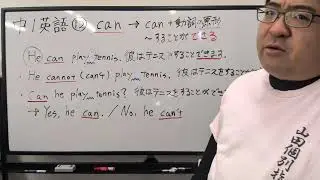 中1英語⑫ can → can + 動詞の原形
～することができる
○ He can play tennis. 彼はテニスをすることができます。
・He cannot (can't) play tennis. 彼はテニスをすることが
・Can he play tennis? 彼はテニスをすることができ
→ Yes, he can. / No, he can't
山田個別指